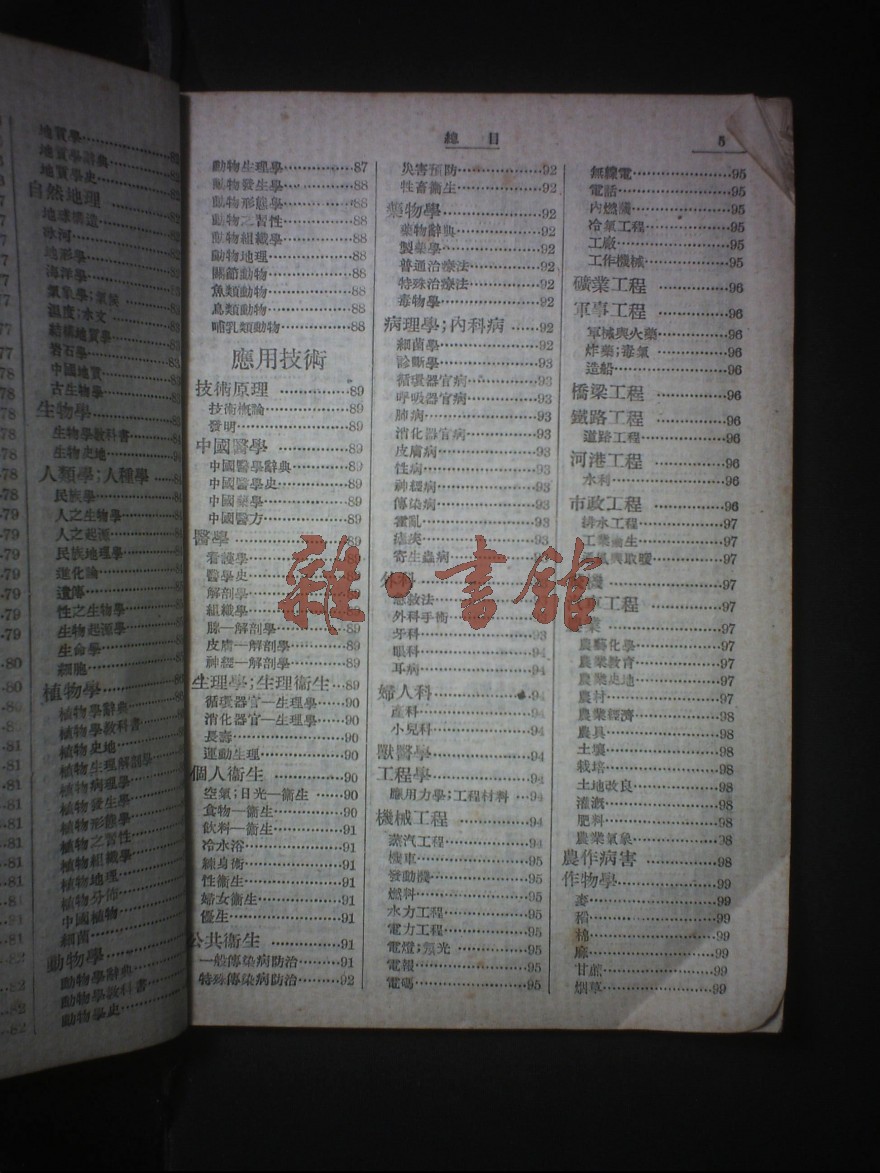 地質學……82
地質學辭典……82
地質學史……82
自然地理
地球構造
冰河
地形學
海洋學
氣象學;氣候
溫度;水文
結構地質學
岩石學
中國地質
古生物學
生物學
生物學教科書
生物史地
人類學;人種學
民族學
人之生物學
人之起源
民族地理學
進化論
遺傳
性之生物學
生物起源學
生命學
細胞
植物學
植物學辭典
植物學教科書
植物史地
植物生理解剖學
植物病理學
植物發生學
植物形態學
植物之習性
植物組織學
植物地理
植物分佈
中國植物
細菌
動物學
動物學辭典
動物學教科書
動物學史
總目
5
動物生理學……87
動物發生學……88
動物形態學……88
動物之習性……88
動物組織學……88
動物地理……88
關節動物……88
魚類動物……88
鳥類動物……88
哺乳類動物……88
應用技術
技術原理……89
技術概論……89
發明……89
中國醫學……89
中國醫學辭典……89
中國醫學史……89
中國藥學……89
中國醫方……89
醫學……89
看護學……89
醫學史……89
解剖學……89
組織學……89
腺—解剖學……89
皮膚—解剖學……89
神經—解剖學……89
生理學;生理衞生……89
循環器官—生理學……90
消化器官—生理學……90
長壽……90
運動生理……90
個人衞生……90
空氣;日光—衞生……90
食物—衞生……90
飲料—衞生……91
冷水浴……91
練身術……91
性衞生……91
婦女衞生……91
優生……91
公共衞生……91
一般傳染病防治……91
特殊傳染病防治……92
災害預防……92
牲畜衞生……92
藥物學……92
藥物辭典……92
製藥學……92
普通治療法……92
特殊治療法……92
毒物學……92
病理學;內科病……92
細菌學……92
診斷學……93
循環器官病……93
呼吸器官病……93
肺病……93
消化器官病……93
皮膚病……93
性病……93
神經病……93
傳染病……93
霍亂……93
瘧疾……93
寄生蟲病……93
外科
急救法
外科手術
牙科……93
眼科……94
耳病……94
婦人科……94
產科……94
小兒科……94
獸醫學……94
工程學……94
應用力學;工程材料……94
機械工程……94
蒸汽工程……94
機車……95
發動機……95
燃料……95
水力工程……95
電力工程……95
電燈;煩光……95
電報……95
電碼……95
無線電……95
電話……95
內燃機……95
冷氣工程……95
工廠……95
工作機械……95
礦業工程……96
軍事工程……96
軍械與火藥……96
炸藥;毒氣……96
造船……96
橋梁工程……96
鐵路工程……96
道路工程……96
河港工程……96
水利……96
市政工程……96
排水工程……97
工業衞生……97
通風與取暖……97
……97
工程……97
農業……97
農藝化學……97
農業教育……97
農業史地……97
農村……97
農業經濟……98
農具……98
土壤……98
栽培……98
土地改良……98
灌溉……98
肥料……98
農業氣象……98
農作病害……98
作物學……99
麥……99
稻……99
棉……99
麻……99
甘蔗……99
烟草……99
雜·書館